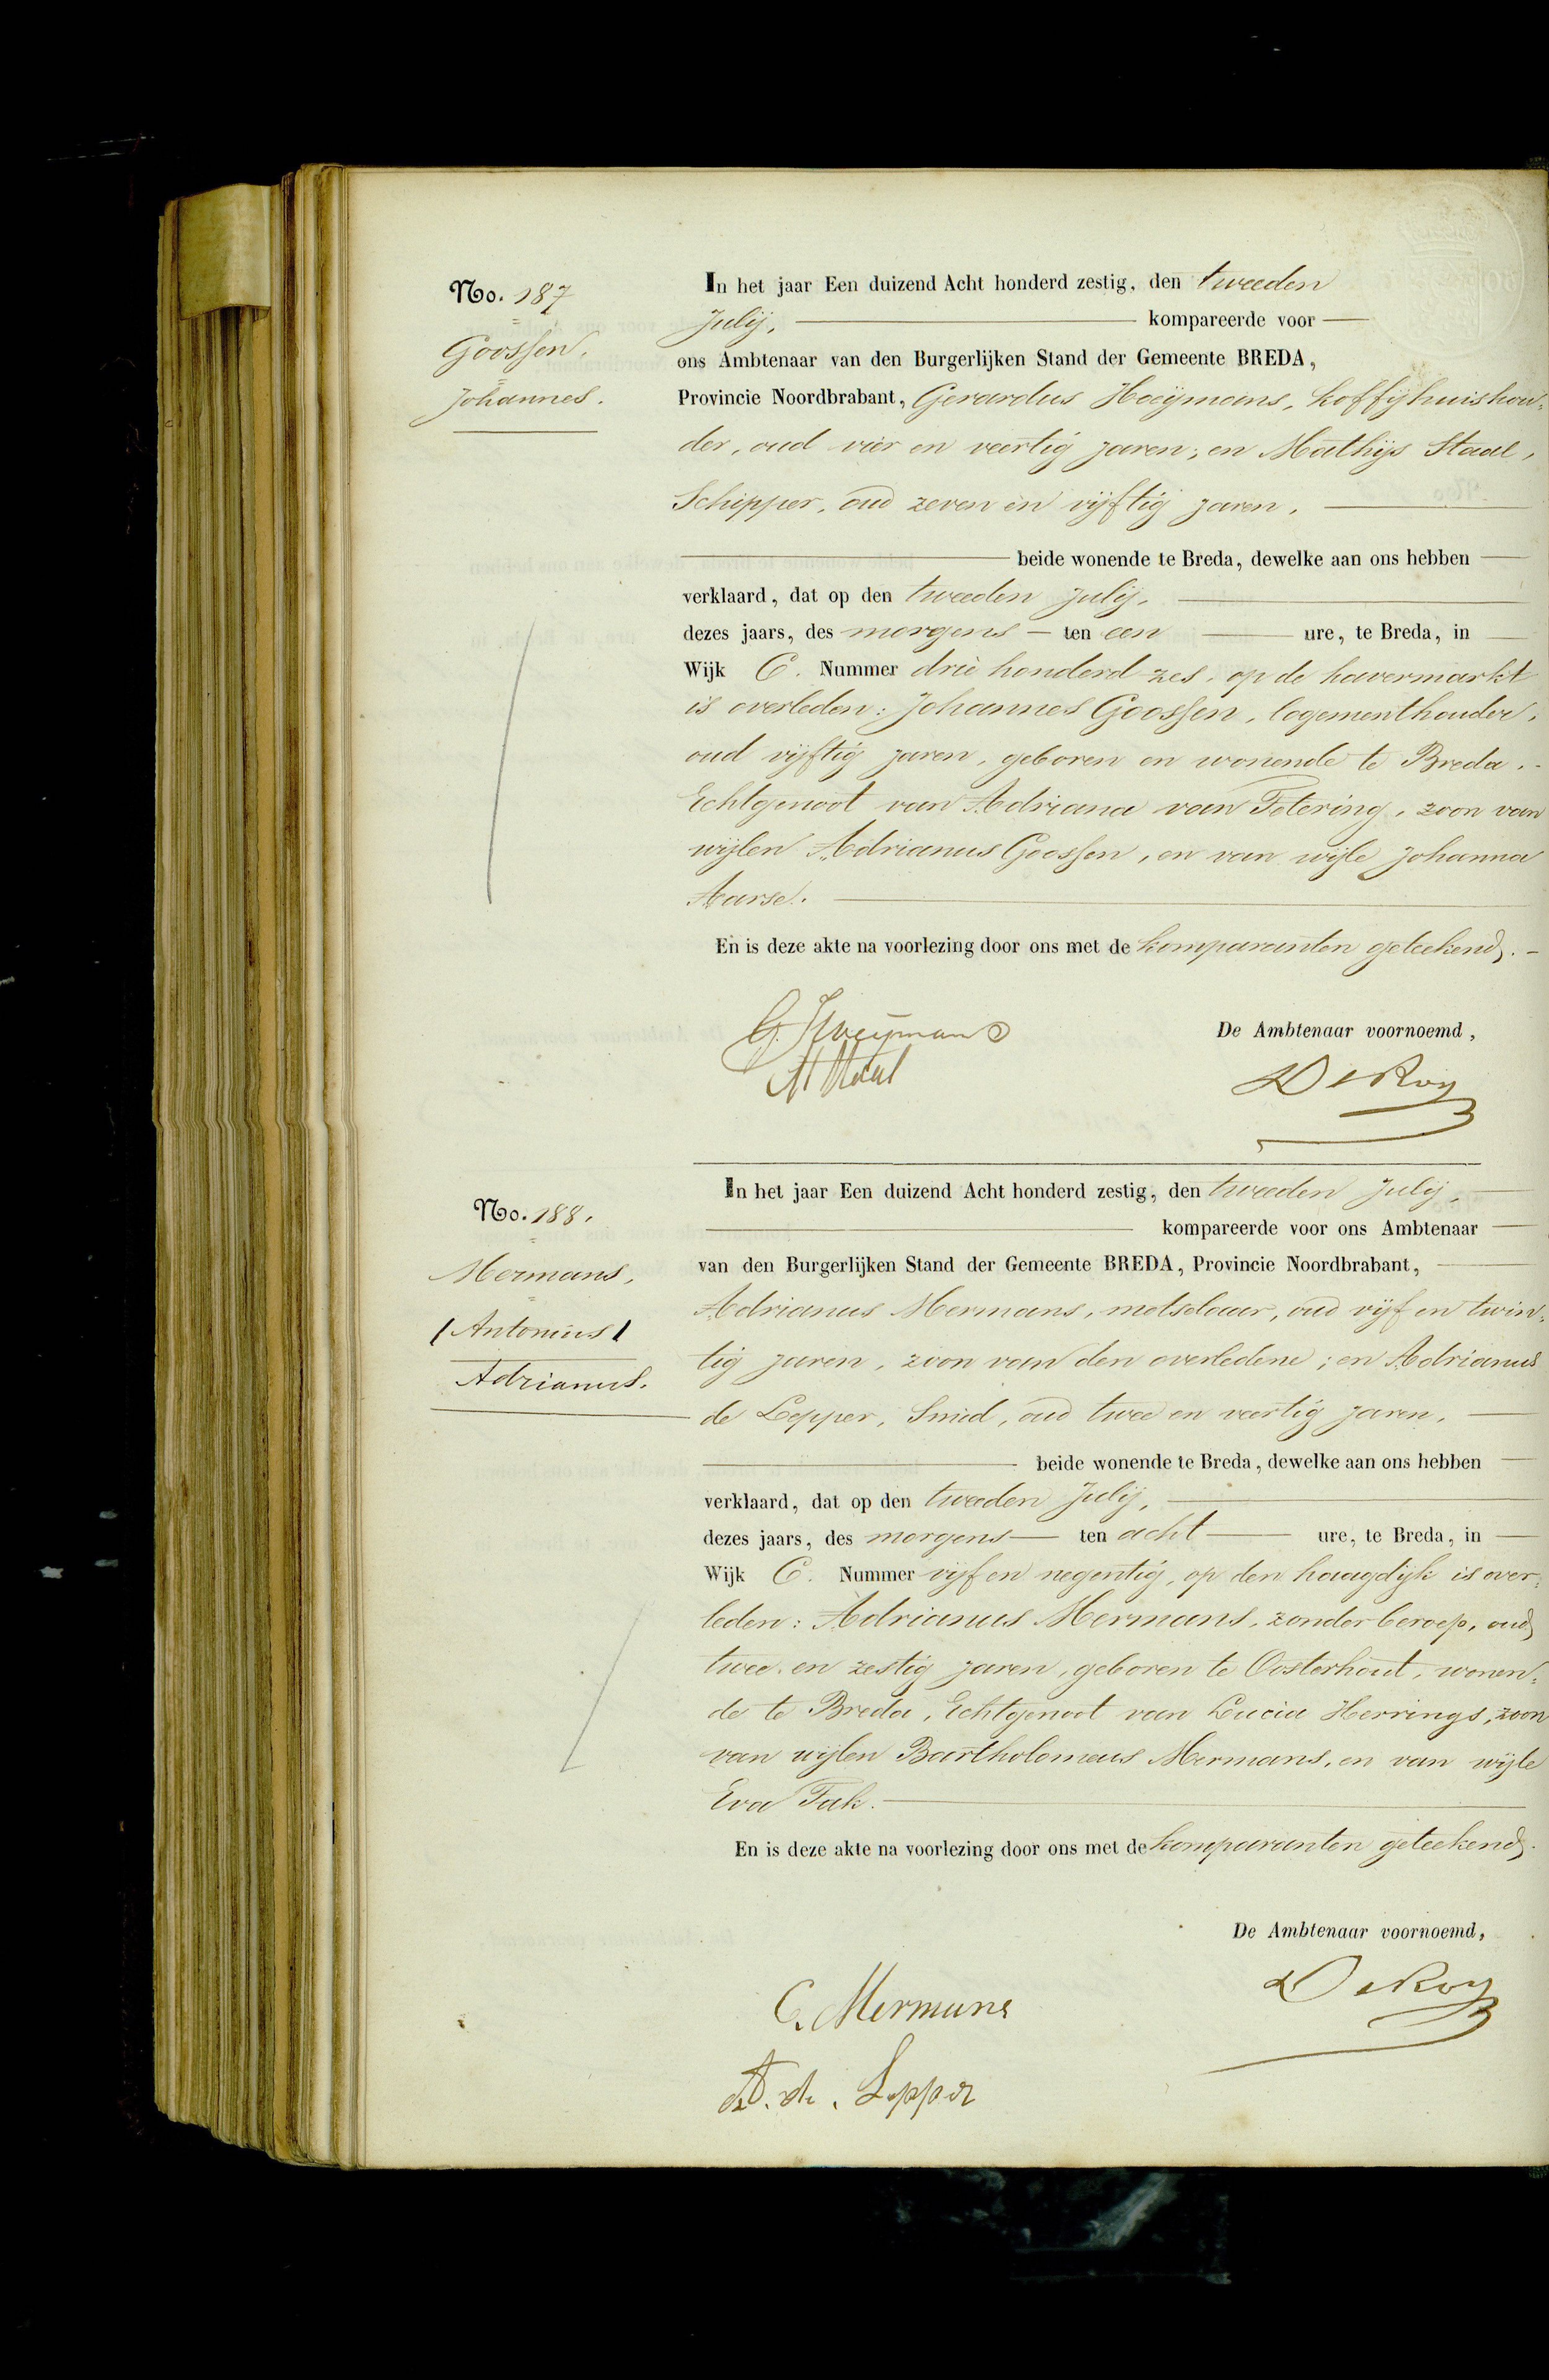 No. 187
Goossen.
Johannes.
In het jaar Een duizend Acht honderd zestig, den tweeden
Julij, kompareerde voor
ons Ambtenaar van den Burgerlijken Stand der Gemeente BREDA,
Provincie Noordbrabant, Gerardus Hoeijmans, koffijhuishou-
der, oud vier en veertig jaren, en Mathijs Staal,
Schipper, oud zeven en vijftig jaren,
beide wonende te Breda, dewelke aan ons hebben
verklaard, dat op den tweeden Julij,
dezes jaars, des morgens ten een ure, te Breda, in
Wijk C. Nummer drie honderd zes, op de havermarkt
is overleden: Johannes Goossen, logementhouder,
oud vijftig jaren, geboren en wonende te Breda.
Echtgenoot van Adriana van Fetering, zoon van
wijlen Adrianus Goossen, en van wijle Johanna
Aarse.
En is deze akte na voorlezing door ons met de komparanten geteekend.
G. Hoeijmans
M Staal
De Ambtenaar voornoemd,
De Roy
No. 188.
Mermans,
(Antonius)
Adrianus.
In het jaar Een duizend Acht honderd zestig, den tweeden Julij,
kompareerde voor ons Ambtenaar
van den Burgerlijken Stand der Gemeente BREDA, Provincie Noordbrabant,
Adrianus Mermans, metselaar, oud vijf en twin-
tig jaren, zoon van den overledene; en Adrianus
de Lepper, Smid, oud twee en veertig jaren,
beide wonende te Breda, dewelke aan ons hebben
verklaard, dat op den tweeden Julij,
dezes jaars, des morgens ten acht ure, te Breda, in
Wijk C. Nummer vijf en negentig, op den haagdijk is over-
leden: Adrianus Mermans, zonder beroep, oud
twee en zestig jaren, geboren te Oosterhout, wonen-
de te Breda, Echtgenoot van Lucia Herrings, zoon
van wijlen Bartholomeus Mermans, en van wijle
Eva Tak.
En is deze akte na voorlezing door ons met de komparanten geteekend.
De Ambtenaar voornoemd,
De Roy
C. Mermans
A. de. Lepper